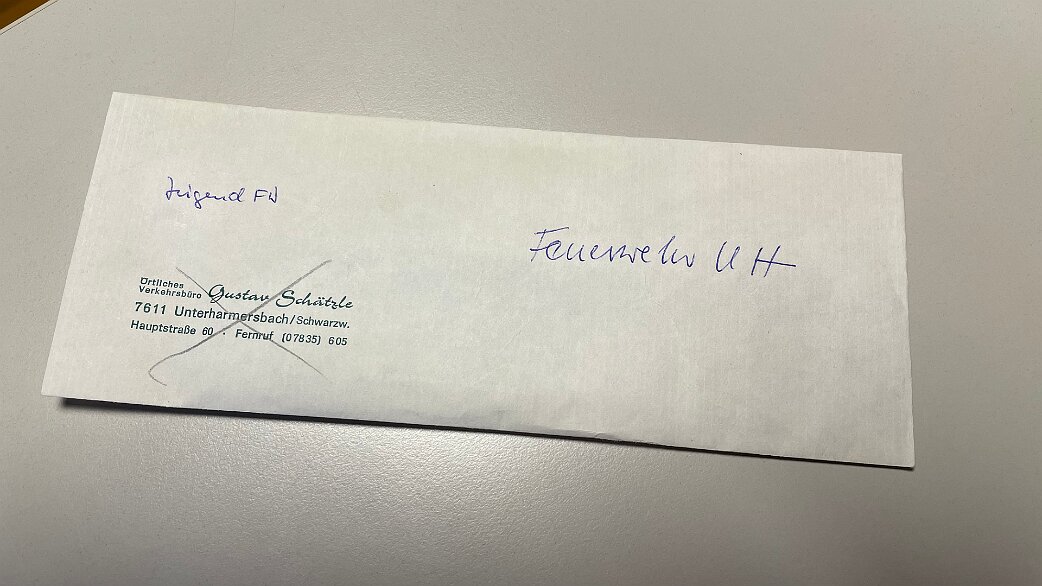 Jugend FW
Feuerwehr U H
Örtliches
Verkehrsbüro Gustav Schätzle
7611 Unterharmersbach/Schwarzw.
Hauptstraße 60 · Fernruf (07835) 605